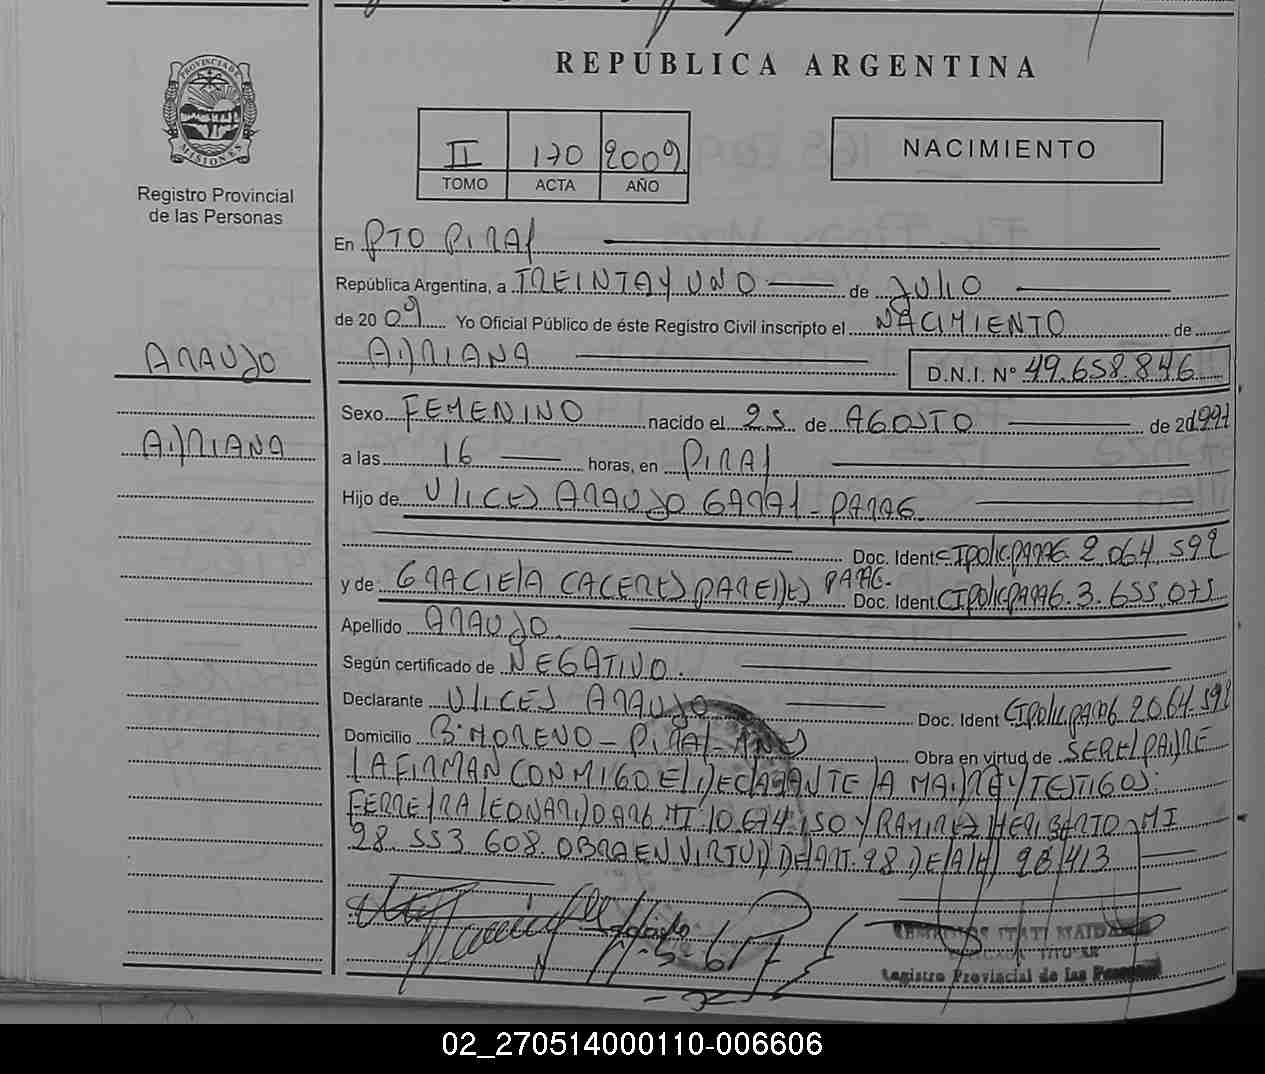 REPÚBLICA ARGENTINA
PROVINCIA DE
MISIONES
Registro Provincial
de las Personas
II 170 2009
TOMO ACTA AÑO
NACIMIENTO
En PTO PIRAY
República Argentina, a TREINTA Y UNO de JULIO
de 20 09 Yo Oficial Público de éste Registro Civil inscripto el NACIMIENTO de
ADRIANA D.N.I. N° 49.658.846
ARAUJO
ADRIANA
Sexo FEMENINO nacido el 25 de AGOSTO de 20 1997
a las 16 horas, en PIRAY
Hijo de ULICES ARAUJO GARAY - PARAG.
Doc. Ident CIPOLIC PARAG. 2.064.592
y de: GRACIELA CACERES PAREDES PARAG.
Doc. Ident. CIPOLIC PARAG. 3.655.075
Apellido ARAUJO.
Según certificado de NEGATIVO.
Declarante ULICES ARAUJO Doc. Ident CIPOLIC PARAG 2.064.592
Domicilio B: MORENO - PIRAY - MNES Obra en virtud de SER EL PADRE
LA FIRMAN CONMIGO EL DECLARANTE LA MADRE Y TESTIGOS:
FERREYRA LEONARDO ARG MI 10.674.150 Y RAMIREZ HERIBERTO MI
28.553.608. OBRA EN VIRTUD DE ART. 28 DE LA LEY 26.413
Registro Provincial de las Personas
02_270514000110-006606